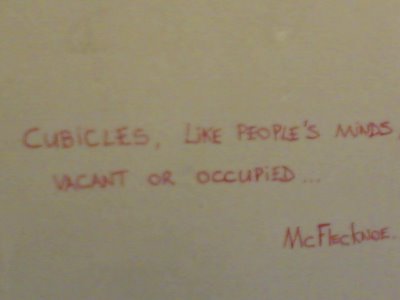 CUBICLES, LIKE PEOPLE'S MINDS,
VACANT OR OCCUPIED...
McFlecknoe.